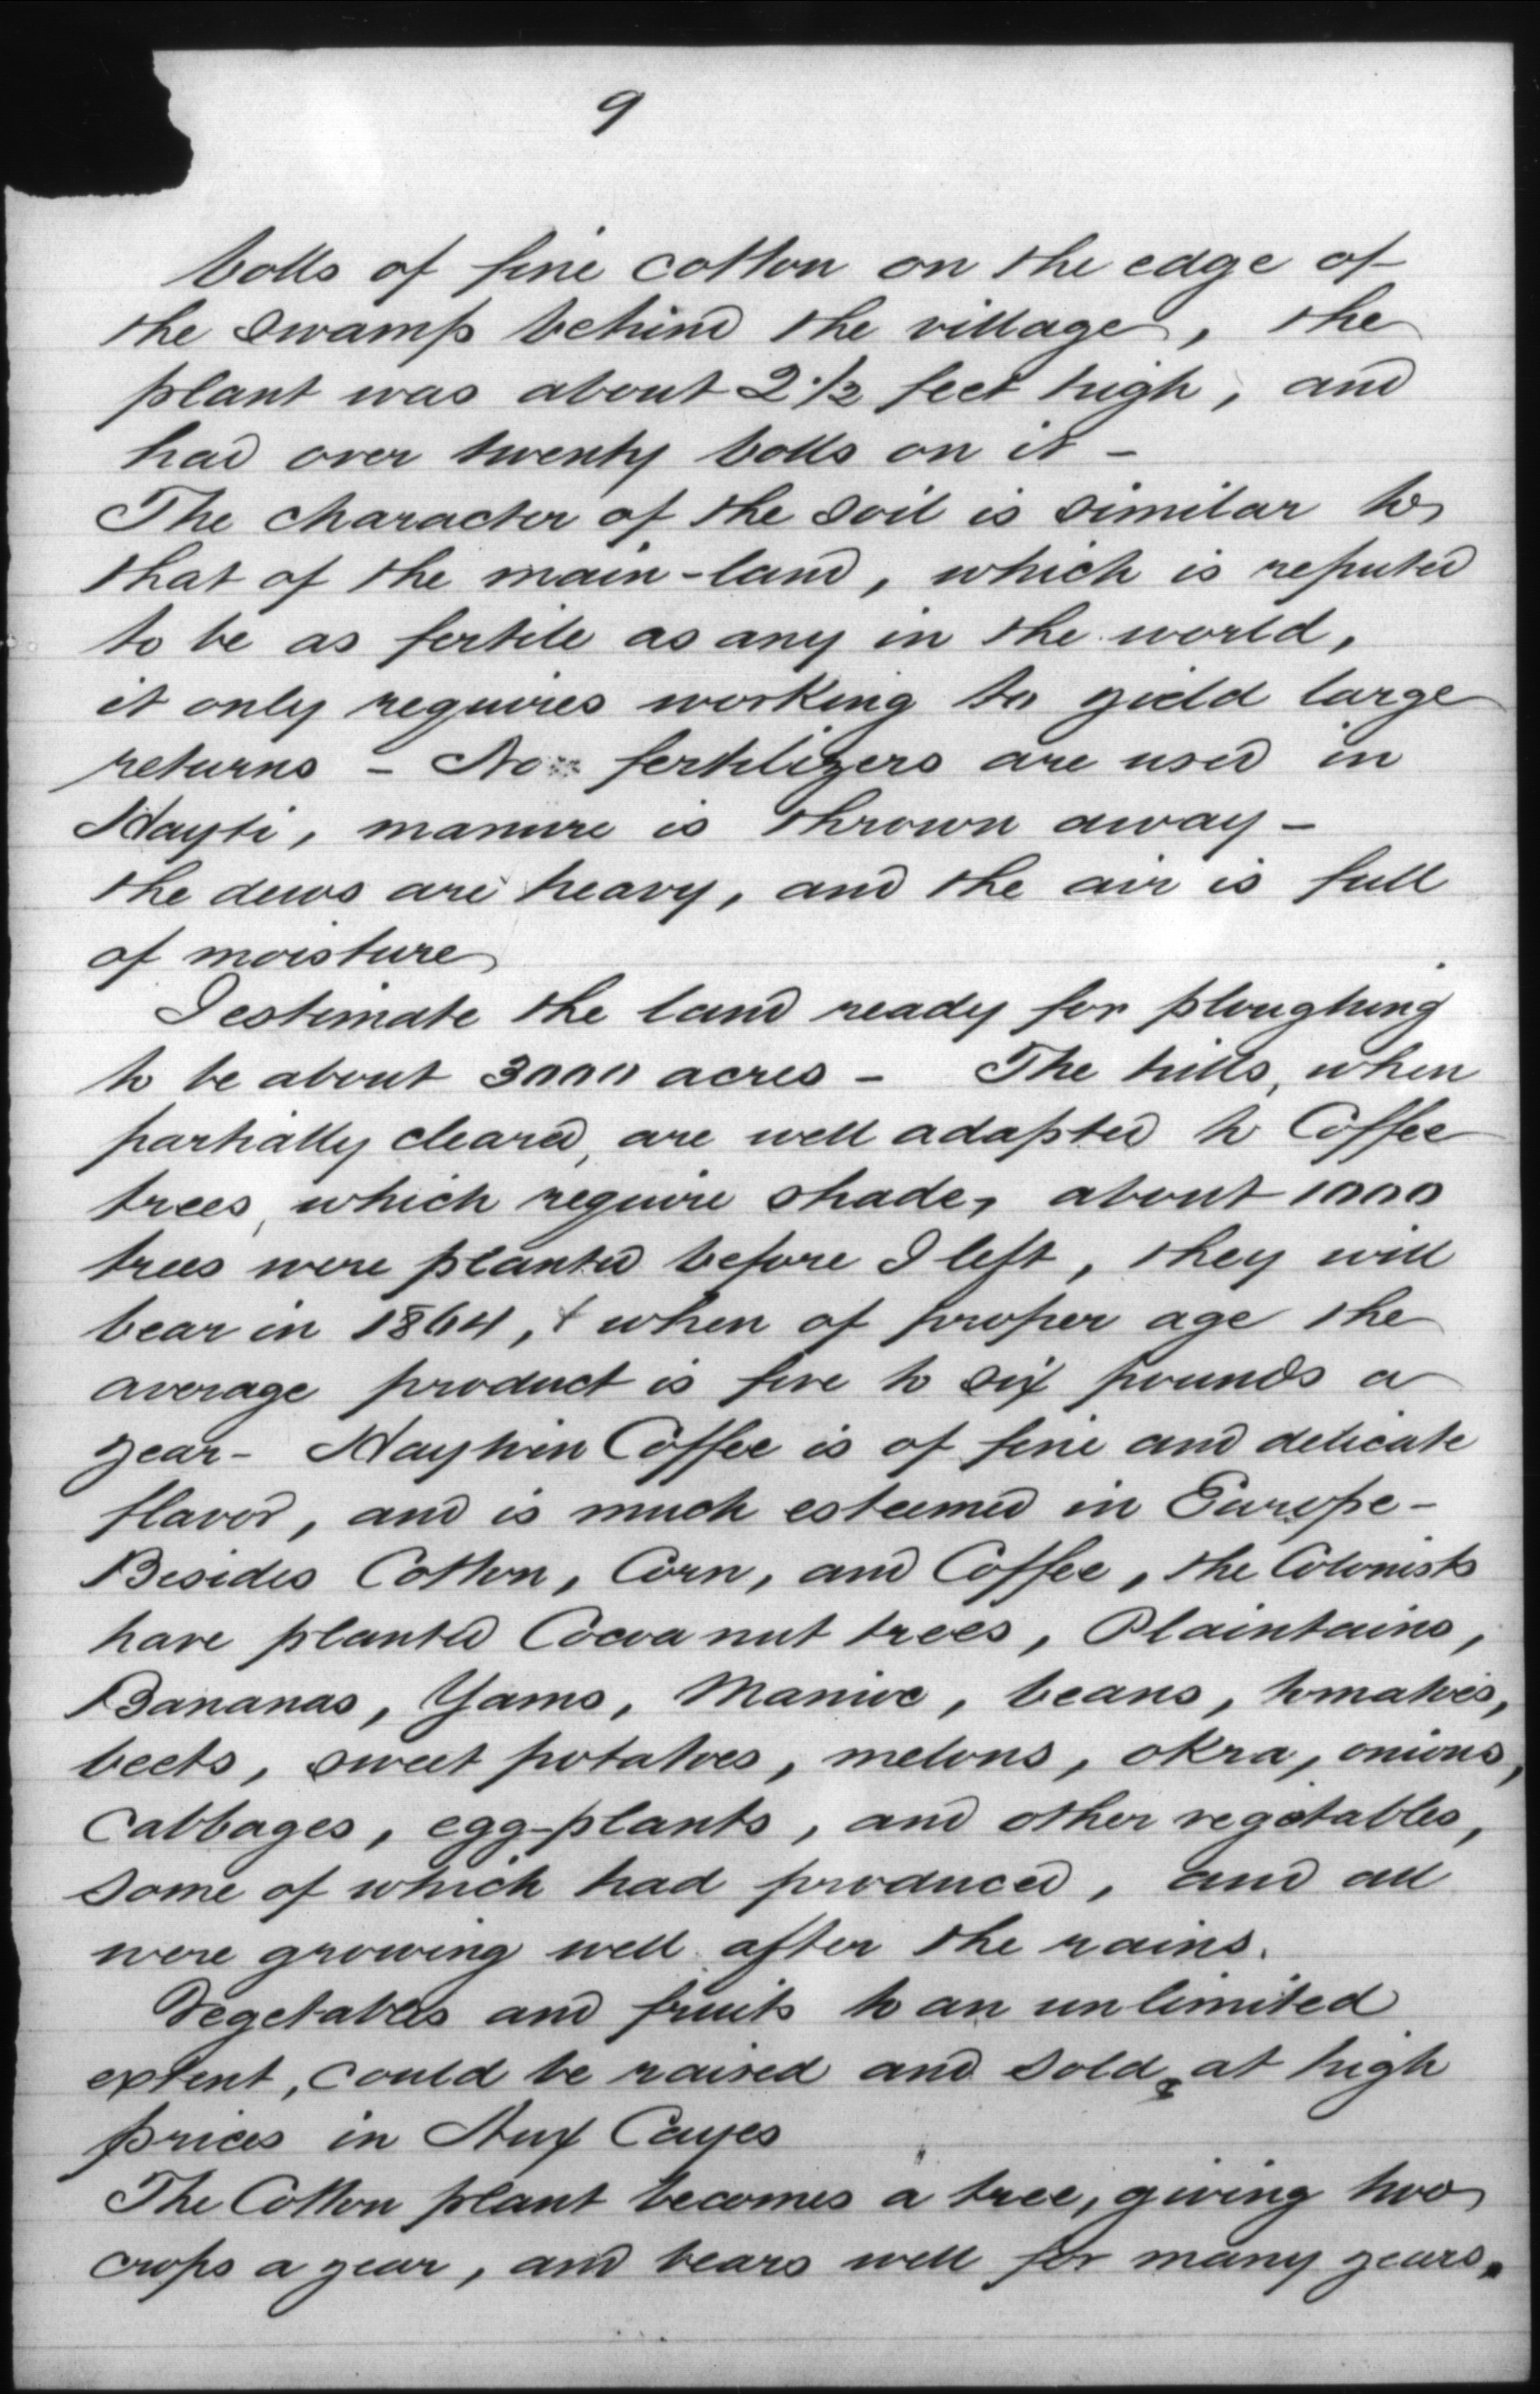 9
bolls of fine cotton on the edge of
the swamp behind the village, the
plant was about 2 1/2 feet high, and
had over twenty bolls on it -
The character of the soil is similar to
that of the main-land, which is reputed
to be as fertile as any in the world,
it only requires working to yield large
returns - No fertilizers are used in
Hayti, manure is thrown away -
the dews are heavy, and the air is full
of moisture
I estimate the land ready for ploughing
to be about 3000 acres - The hills, when
partially cleared, are well adapted to Coffee
trees, which require shade, about 1000
trees were planted before I left, they will
bear in 1864, & when of proper age the
average product is five to six pounds a
year - Haytien Coffee is of fine and delicate
flavor, and is much esteemed in Europe -
Besides Cotton, Corn, and Coffee, the Colonists
have planted Cocoa nut trees, Plaintains,
Bananas, Yams, Manioc, beans, tomatoes,
beets, sweet potatoes, melons, okra, onions,
cabbages, egg-plants, and other vegetables,
some of which had produced, and all
were growing well after the rains.
Vegetables and fruits to an unlimited
extent, could be raised and sold at high
prices in Aux Cayes
The Cotton plant becomes a tree, giving two
crops a year, and bears well for many years.